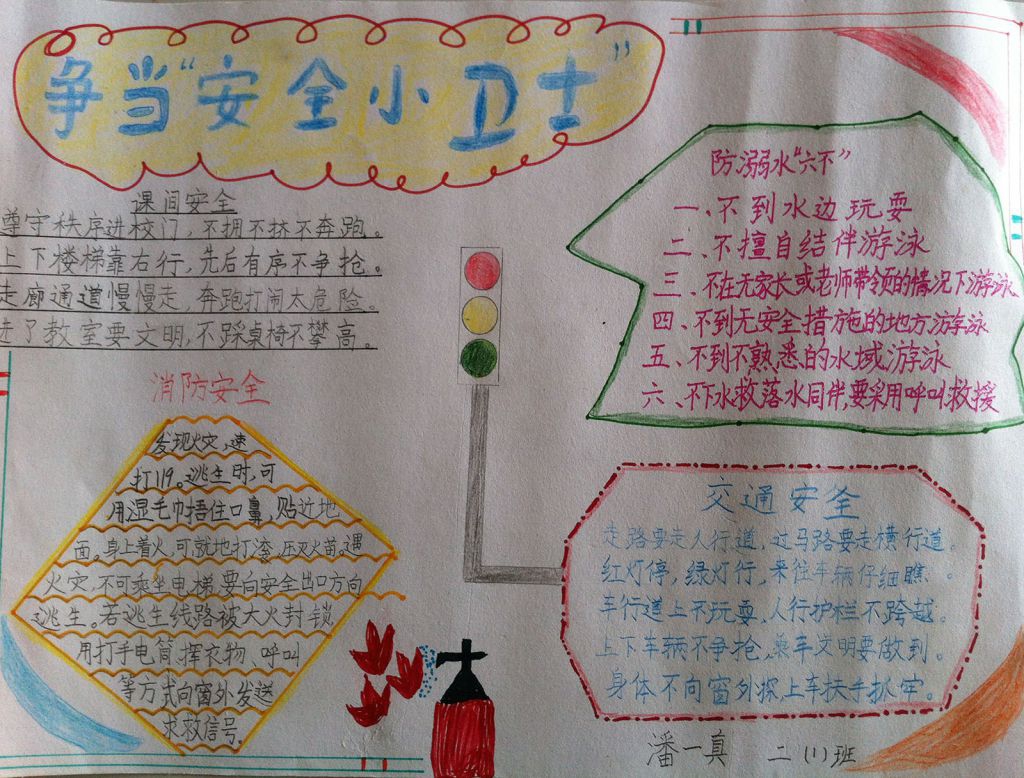 争当“安全小卫士”
课间安全
遵守秩序进校门,不拥不挤不奔跑。
上下楼梯靠右行,先后有序不争抢。
走廊通道慢慢走,奔跑打闹太危险。
进了教室要文明,不踩桌椅不攀高。
消防安全
发现火灾,速
打119。逃生时,可
用湿毛巾捂住口鼻,贴近地
面。身上着火,可就地打滚,压灭火苗,遇
火灾,不可乘坐电梯,要向安全出口方向
逃生。若逃生线路被大火封锁
用打手电筒、挥衣物、呼叫
等方式向窗外发送
求救信号。
防溺水“六不”
一、不到水边玩耍
二、不擅自结伴游泳
三、不在无家长或老师带领的情况下游泳
四、不到无安全措施的地方游泳
五、不到不熟悉的水域游泳
六、不下水救落水同伴,要采用呼叫救援
交通安全
走路要走人行道,过马路要走横行道。
红灯停,绿灯行,来往车辆仔细瞧。
车行道上不玩耍,人行护栏不跨越。
上下车辆不争抢,乘车文明要做到。
身体不向窗外探,上车扶手抓牢。
潘一真 二(1)班